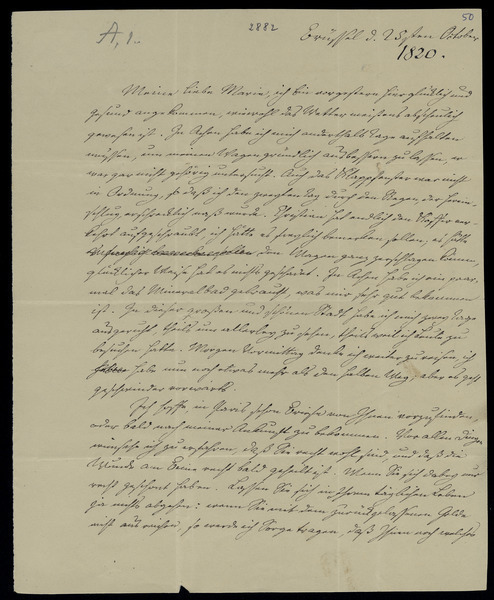 A, 1.
2882
50
Brüssel d. 25sten October
1820.
Meine liebe Marie, ich bin vorgestern hier glücklich und
gesund angekommen, wiewohl das Wetter meistens abscheulich
gewesen ist. In Achen habe ich mich anderthalb Tage aufhalten
müssen, um meinen Wagen gründlich ausbessern zu lassen, er
war gar nicht gehörig untersucht. Auch das Klappfenster war nicht
in Ordnung, so daß ich den ganzen Tag durch den Regen, der
erschrecklich naß wurde. Christian hat endlich den Koffer ver-
kehrt aufgeschraubt, ich hätte es freylich bemerken sollen, es hätte
den Wagen ganz zerschlagen können,
glücklicher Weise hat es nichts geschadet. In Achen habe ich ein paar-
mal das Mineralbad gebraucht, was mir sehr gut bekommen
ist. In dieser großen und schönen Stadt habe ich mich zwey Tage
ausgeruht, theils um allerley zu sehen, theils weil ich Leute zu
besuchen hatte. Morgen Vormittag denke ich weiter zu reisen, ich
habe nun noch etwas mehr als den halben Weg, aber es geht
geschwinder vorwärts.
Ich hoffe, in Paris schon Briefe von Ihnen vorzufinden,
oder bald nach meiner Ankunft zu bekommen. Vor allen Dingen
wünsche ich zu erfahren, daß Sie recht wohl sind, und daß die
Wunde am Beine recht bald geheilt ist. Wenn Sie sich dabey nur
recht geschont haben. Lassen Sie sich in Ihrem täglichen Leben
ja nichts abgehen: wenn Sie mit dem zurückgelassenen Gelde
nicht ausreichen, so werde ich Sorge tragen, daß Ihnen noch welches